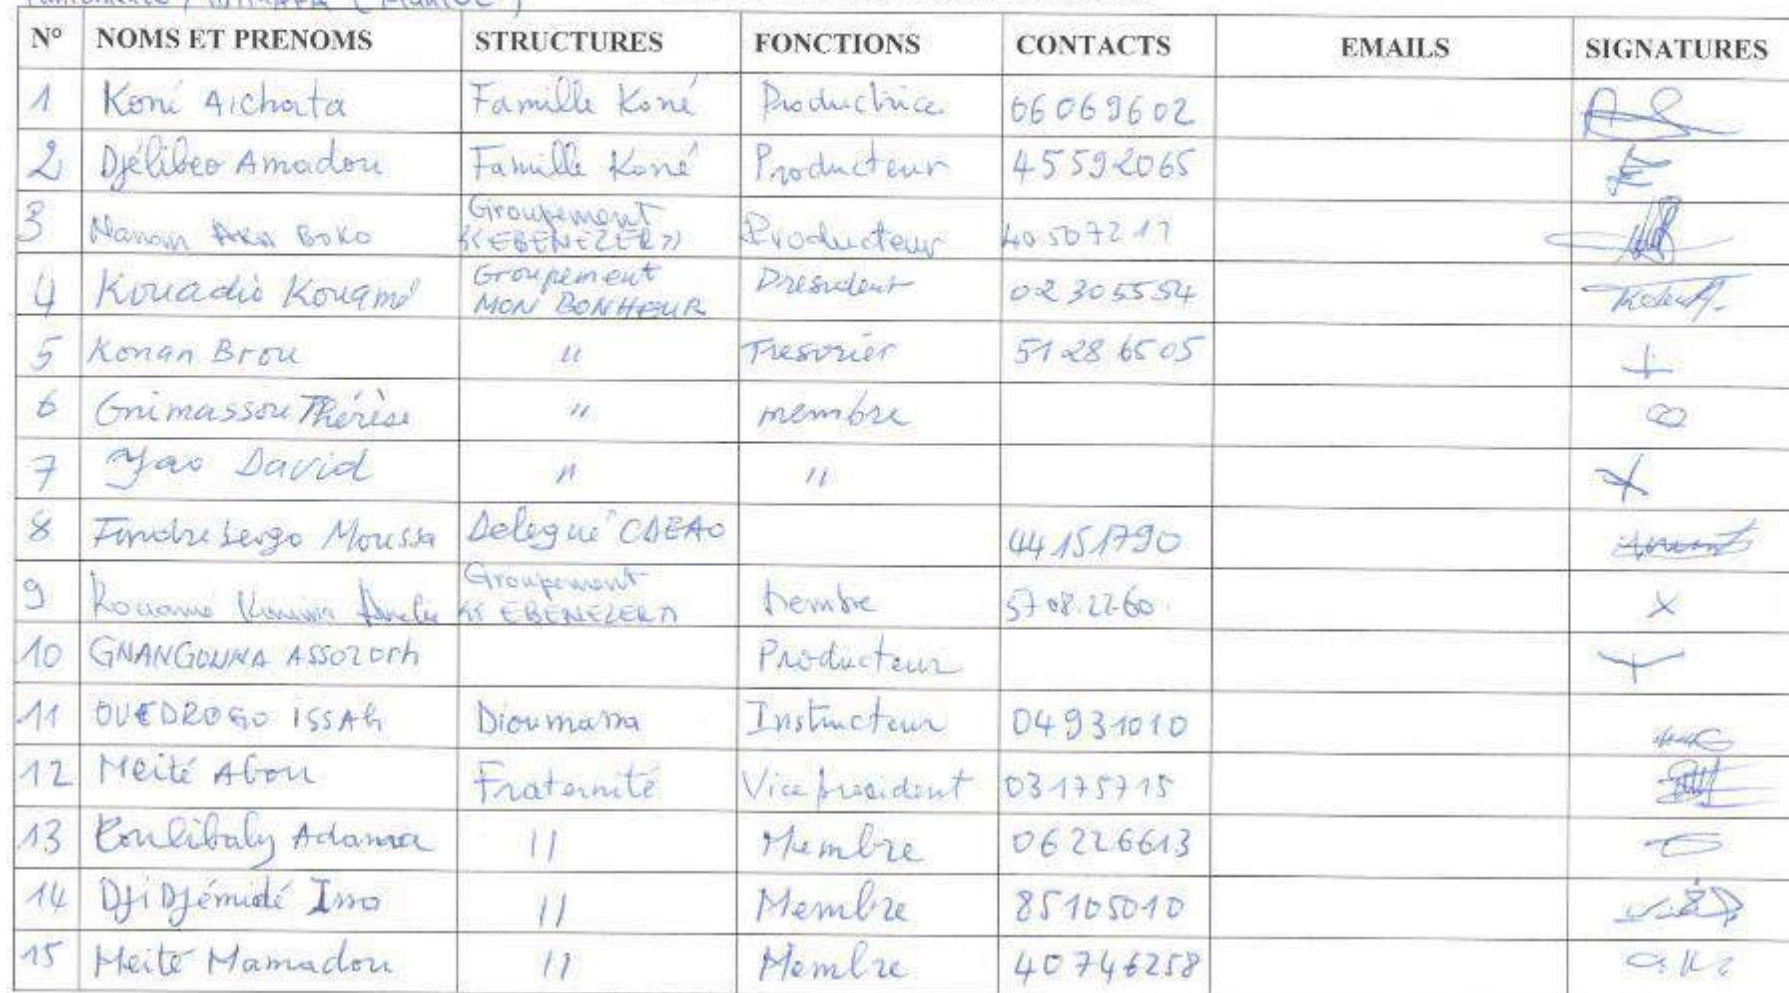 N° NOMS ET PRENOMS STRUCTURES FONCTIONS CONTACTS EMAILS SIGNATURES
1 Koné Aichata Famille Koné Productrice 06069602
2 Djélibeo Amadou Famille Koné Producteur 45592065
3 Boko Groupement «EBENEZER» Producteur 40507217
4 Kouadio Kouamé Groupement MON BONHEUR President 02305554
5 Konan Brou " Tresorier 51286505
6 Gnimassou Thérèse " membre
7 Yao David " "
8 Moussa Delegué CDEAO 44151790
9 Kouamé Groupement «EBENEZER» membre 57.08.22.60.
10 GNANGOUNNA Producteur
11 OUEDROGO ISSAh Dioumana Instructeur 04931010
12 Meité Abou Fraternité Vice president 03175715
13 Coulibaly Adama " Membre 06226613
14 Dji Djémidé Issa " Membre 85105010
15 Meité Mamadou " Membre 40746258